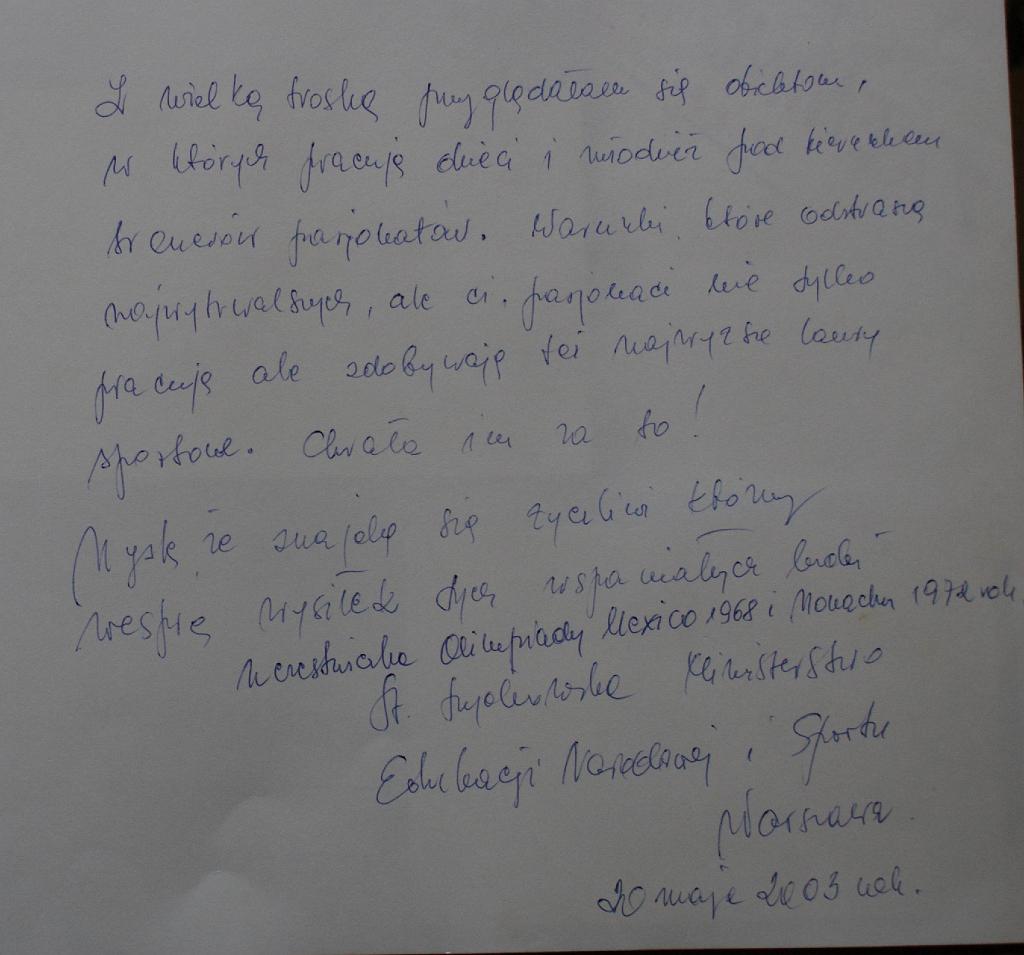 Z wielką troską przyglądałam się obiektom,
w których pracują dzieci i młodzież pod kierunkiem
trenerów pasjonatów. Warunki, które odstraszą
najwytrwalszych, ale ci, pasjonaci nie tylko
pracują ale zdobywają też najwyższe laury
sportowe. Chwała im za to!
Myślę że znajdą się życzliwi którzy
wesprą wysiłek tych wspaniałych ludzi
uczestniczka Olimpiady Mexico 1968 i Monachium 1972 rok
St. Ministerstwo
Edukacji Narodowej i Sportu
Warszawa.
20 maja 2003 rok.